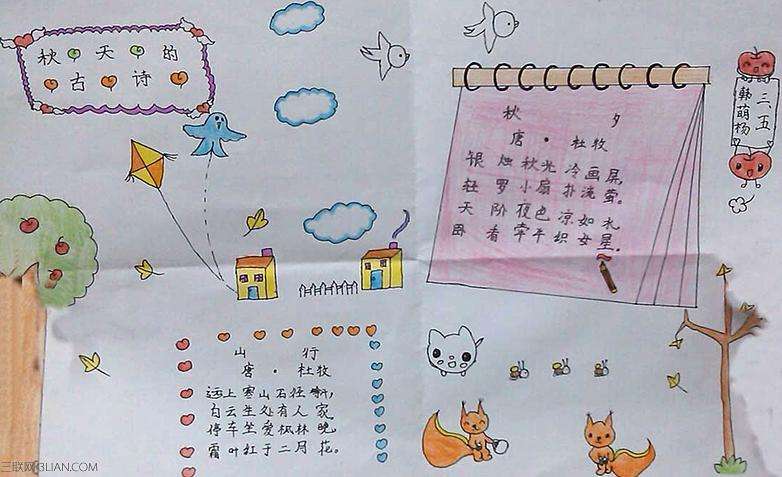 秋天的
古诗
秋 夕
唐·杜牧
银烛秋光冷画屏,
轻罗小扇扑流萤。
天阶夜色凉如水
卧看牵牛织女星.
三五
韩萌杨
山 行
唐·杜牧
远上寒山石径斜,
白云生处有人家
停车坐爱枫林晚,
霜叶红于二月花。
三联网3LIAN.COM